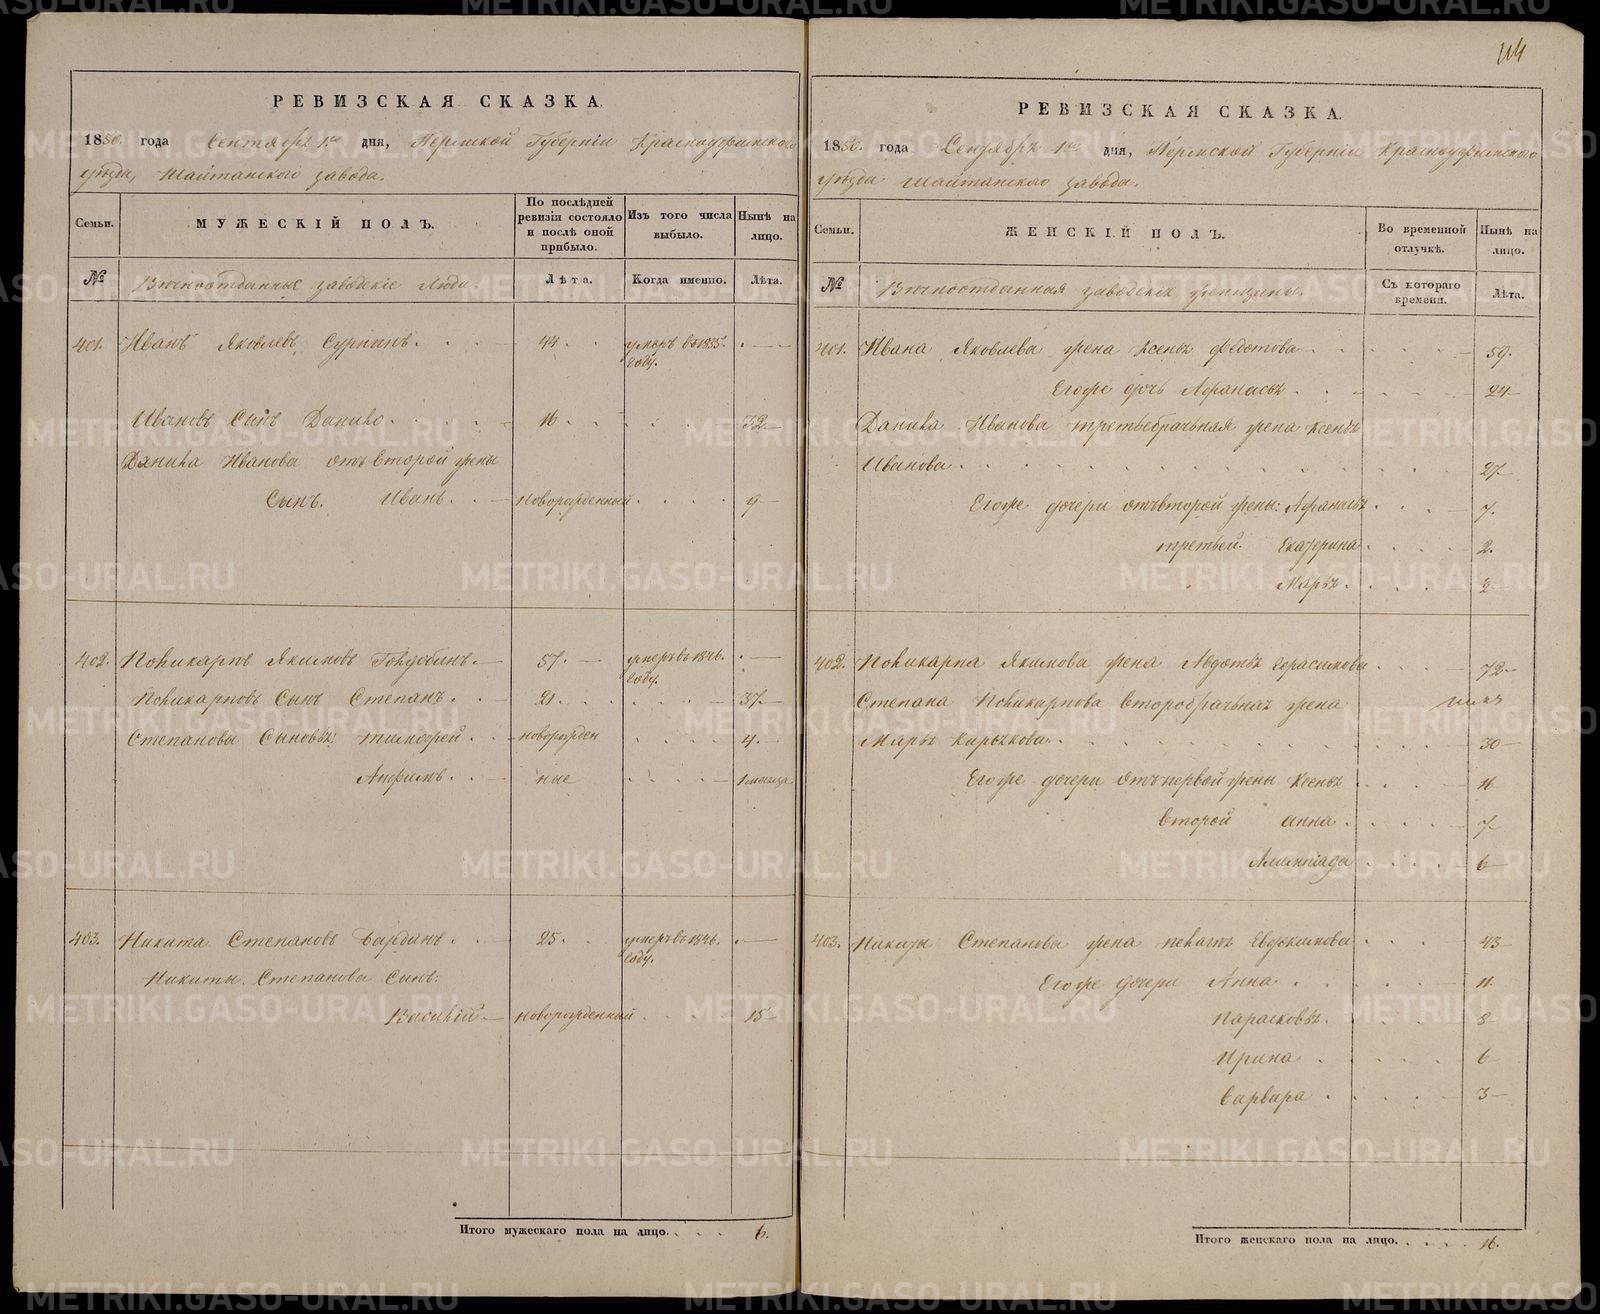 114
РЕВИЗСКАЯ СКАЗКА.
1850. года Сентября 1го дня, Пермской Губерніи Красноуфимскаго
уѣзда, Шайтанскаго завода.
Семьи.
МУЖЕСКІЙ ПОЛЪ.
По послѣдней ревизіи состояло и послѣ оной прибыло.
Изъ того числа выбыло.
Нынѣ на лицо.
№
Вѣчноотданные заводскіе Люди.
Лѣта.
Когда именно.
Лѣта.
401. Иванъ Яковлевъ 44 1835. году.
Ивановъ Сынъ Данило 16 32
Данила Иванова отъ второй жены
Сынъ. Иванъ. Новорожденный 9
402. Поликарпъ Якимовъ Голубинъ. 57. умеръ въ 1846. году.
Поликарповъ Сынъ Степанъ. 21. 37.
Степановы Сыновья: Тимофей новорожден 4.
ные 1 месяца
403. Никита Степановъ 25. умеръ въ 1846. году.
Никиты Степанова Сынъ:
Василій новорожденный 15
Итого мужескаго пола на лицо. 6.
РЕВИЗСКАЯ СКАЗКА.
1850. года Сентября 1го дня, Пермской Губерніи Красноуфимскаго
уѣзда Шайтанскаго завода.
Семьи.
ЖЕНСКІЙ ПОЛЪ.
Во временной отлучкѣ.
Нынѣ на лицо.
№
Вѣчноотданныя заводскія женщины.
Съ котораго времени.
Лѣта.
401. Ивана Яковлева жена Ксенья Федотова 59.
Егоже дочь Афанасья 24
Данила Иванова третьебрачьная жена Ксенья
Иванова 27
Егоже дочери отъ второй жены: Афанасья 7.
третьей. Екатерина 2.
Марья. 2
402. Поликарпа Якимова жена Авдотья Герасимова 72
Степана Поликарпова второбрачьная жена
Марья Кирилова 30
Егоже дочери отъ первой жены Ксенья 11
второй Анна 7
Алимпіада 6
403. Никиты Степанова жена Пелагея Евдокимова 43
Егоже дочери Анна 11.
Парасковья. 8
Ирина 6
Варвара 3
Итого женскаго пола на лицо. 16.
METRIKI.GASO-URAL.RU